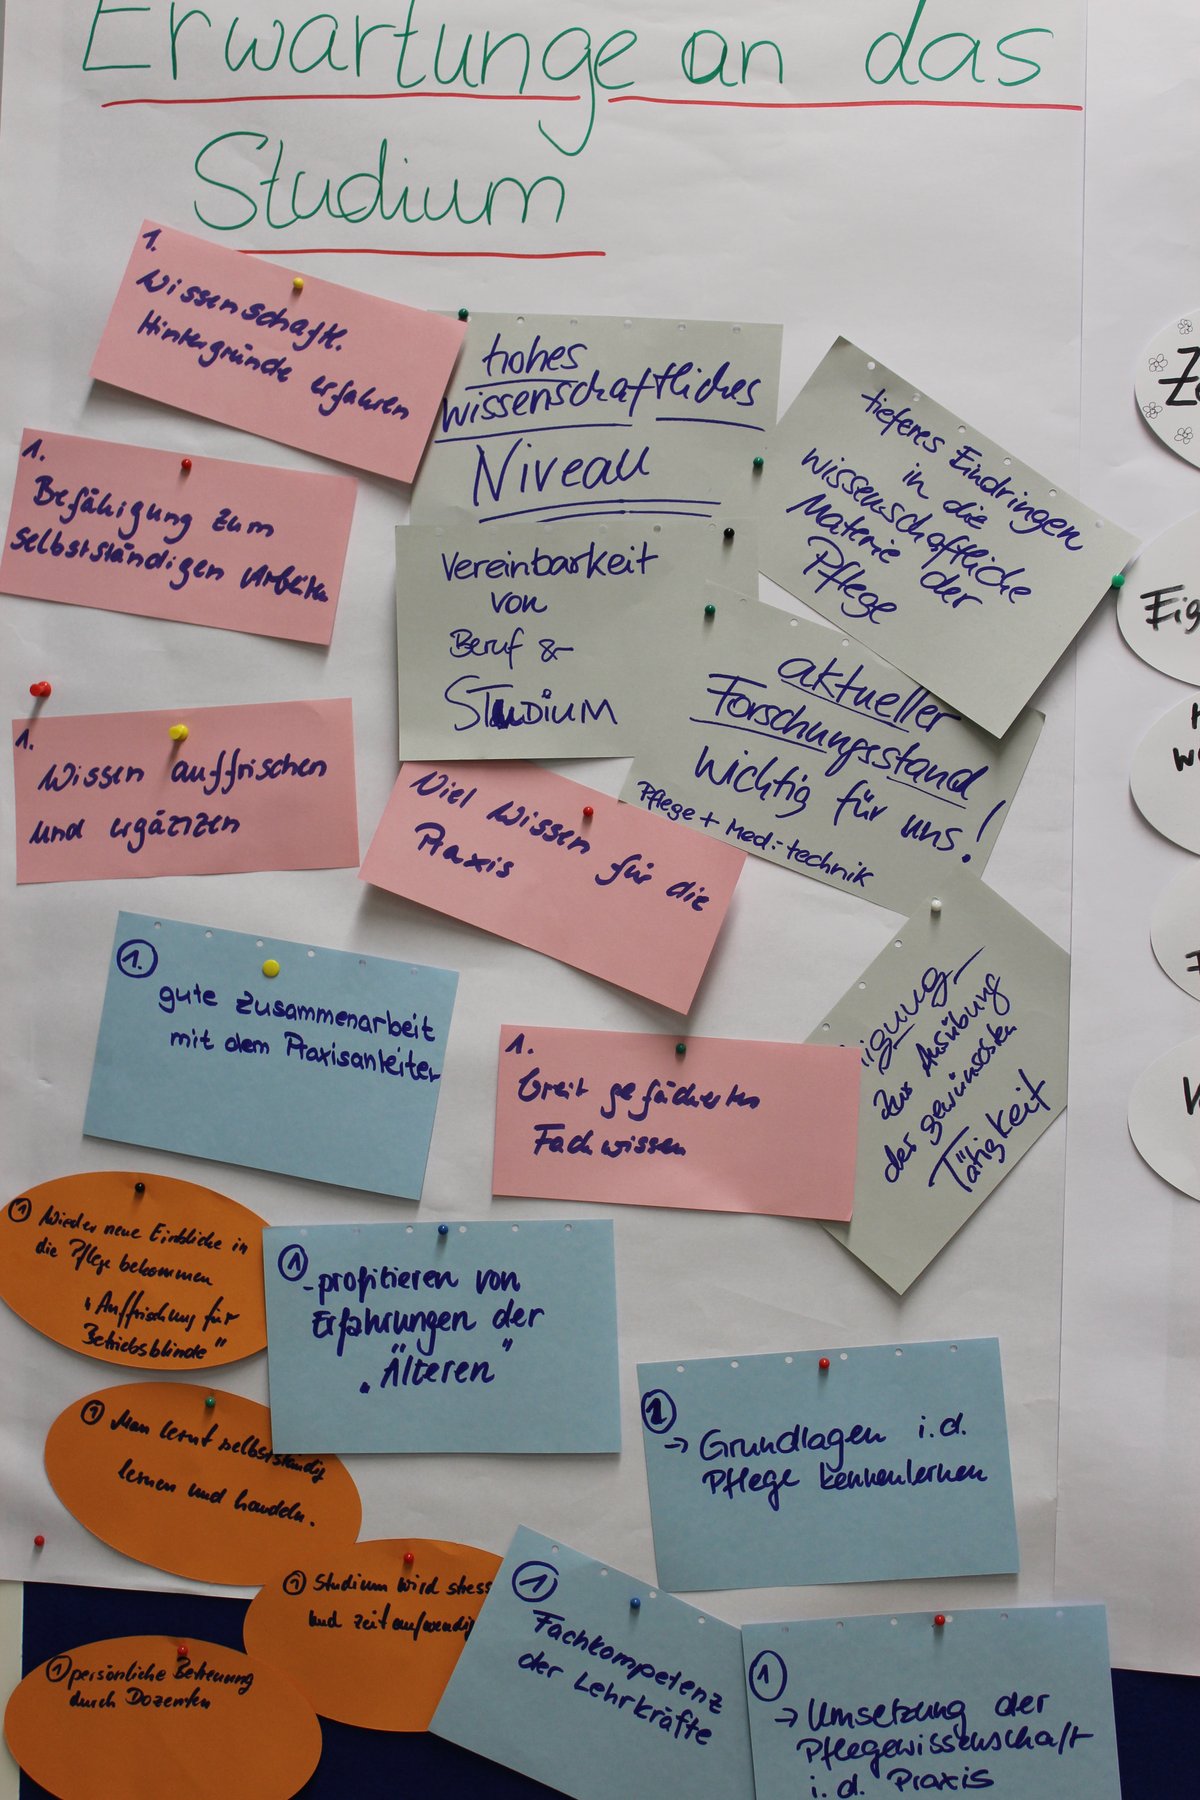 Erwartunge an das
Studium
1.
Wissenschaftl.
Hintergründe erfahren
hohes
wissenschaftliches
Niveau
tieferes Eindringen
in die
wissenschaftliche
Materie der
Pflege
1.
Befähigung zum
selbstständigen Arbeiten
Vereinbarkeit
von
Beruf &
STUDIUM
aktueller
Forschungsstand
wichtig für uns!
Pflege + Med.-technik
1.
Wissen auffrischen
und ergänzen
Viel Wissen für die
Praxis
1.
gute Zusammenarbeit
mit dem Praxisanleiter
1.
breit gefächertes
Fachwissen
igung
zur Ausübung
der gewünschten
Tätigkeit
1 Wieder neue Einblicke in
die Pflege bekommen
"Auffrischung für
Betriebsblinde"
1
-profitieren von
Erfahrungen der
"Älteren"
1 Man lernt selbstständig
lernen und handeln.
1
→ Grundlagen i.d.
Pflege kennenlernen
1 Studium wird stress
und zeitaufwendig
1
Fachkompetenz
der Lehrkräfte
1 persönliche Betreuung
durch Dozenten
1
→ Umsetzung der
Pflegewissenschaft
i.d. Praxis
Eig